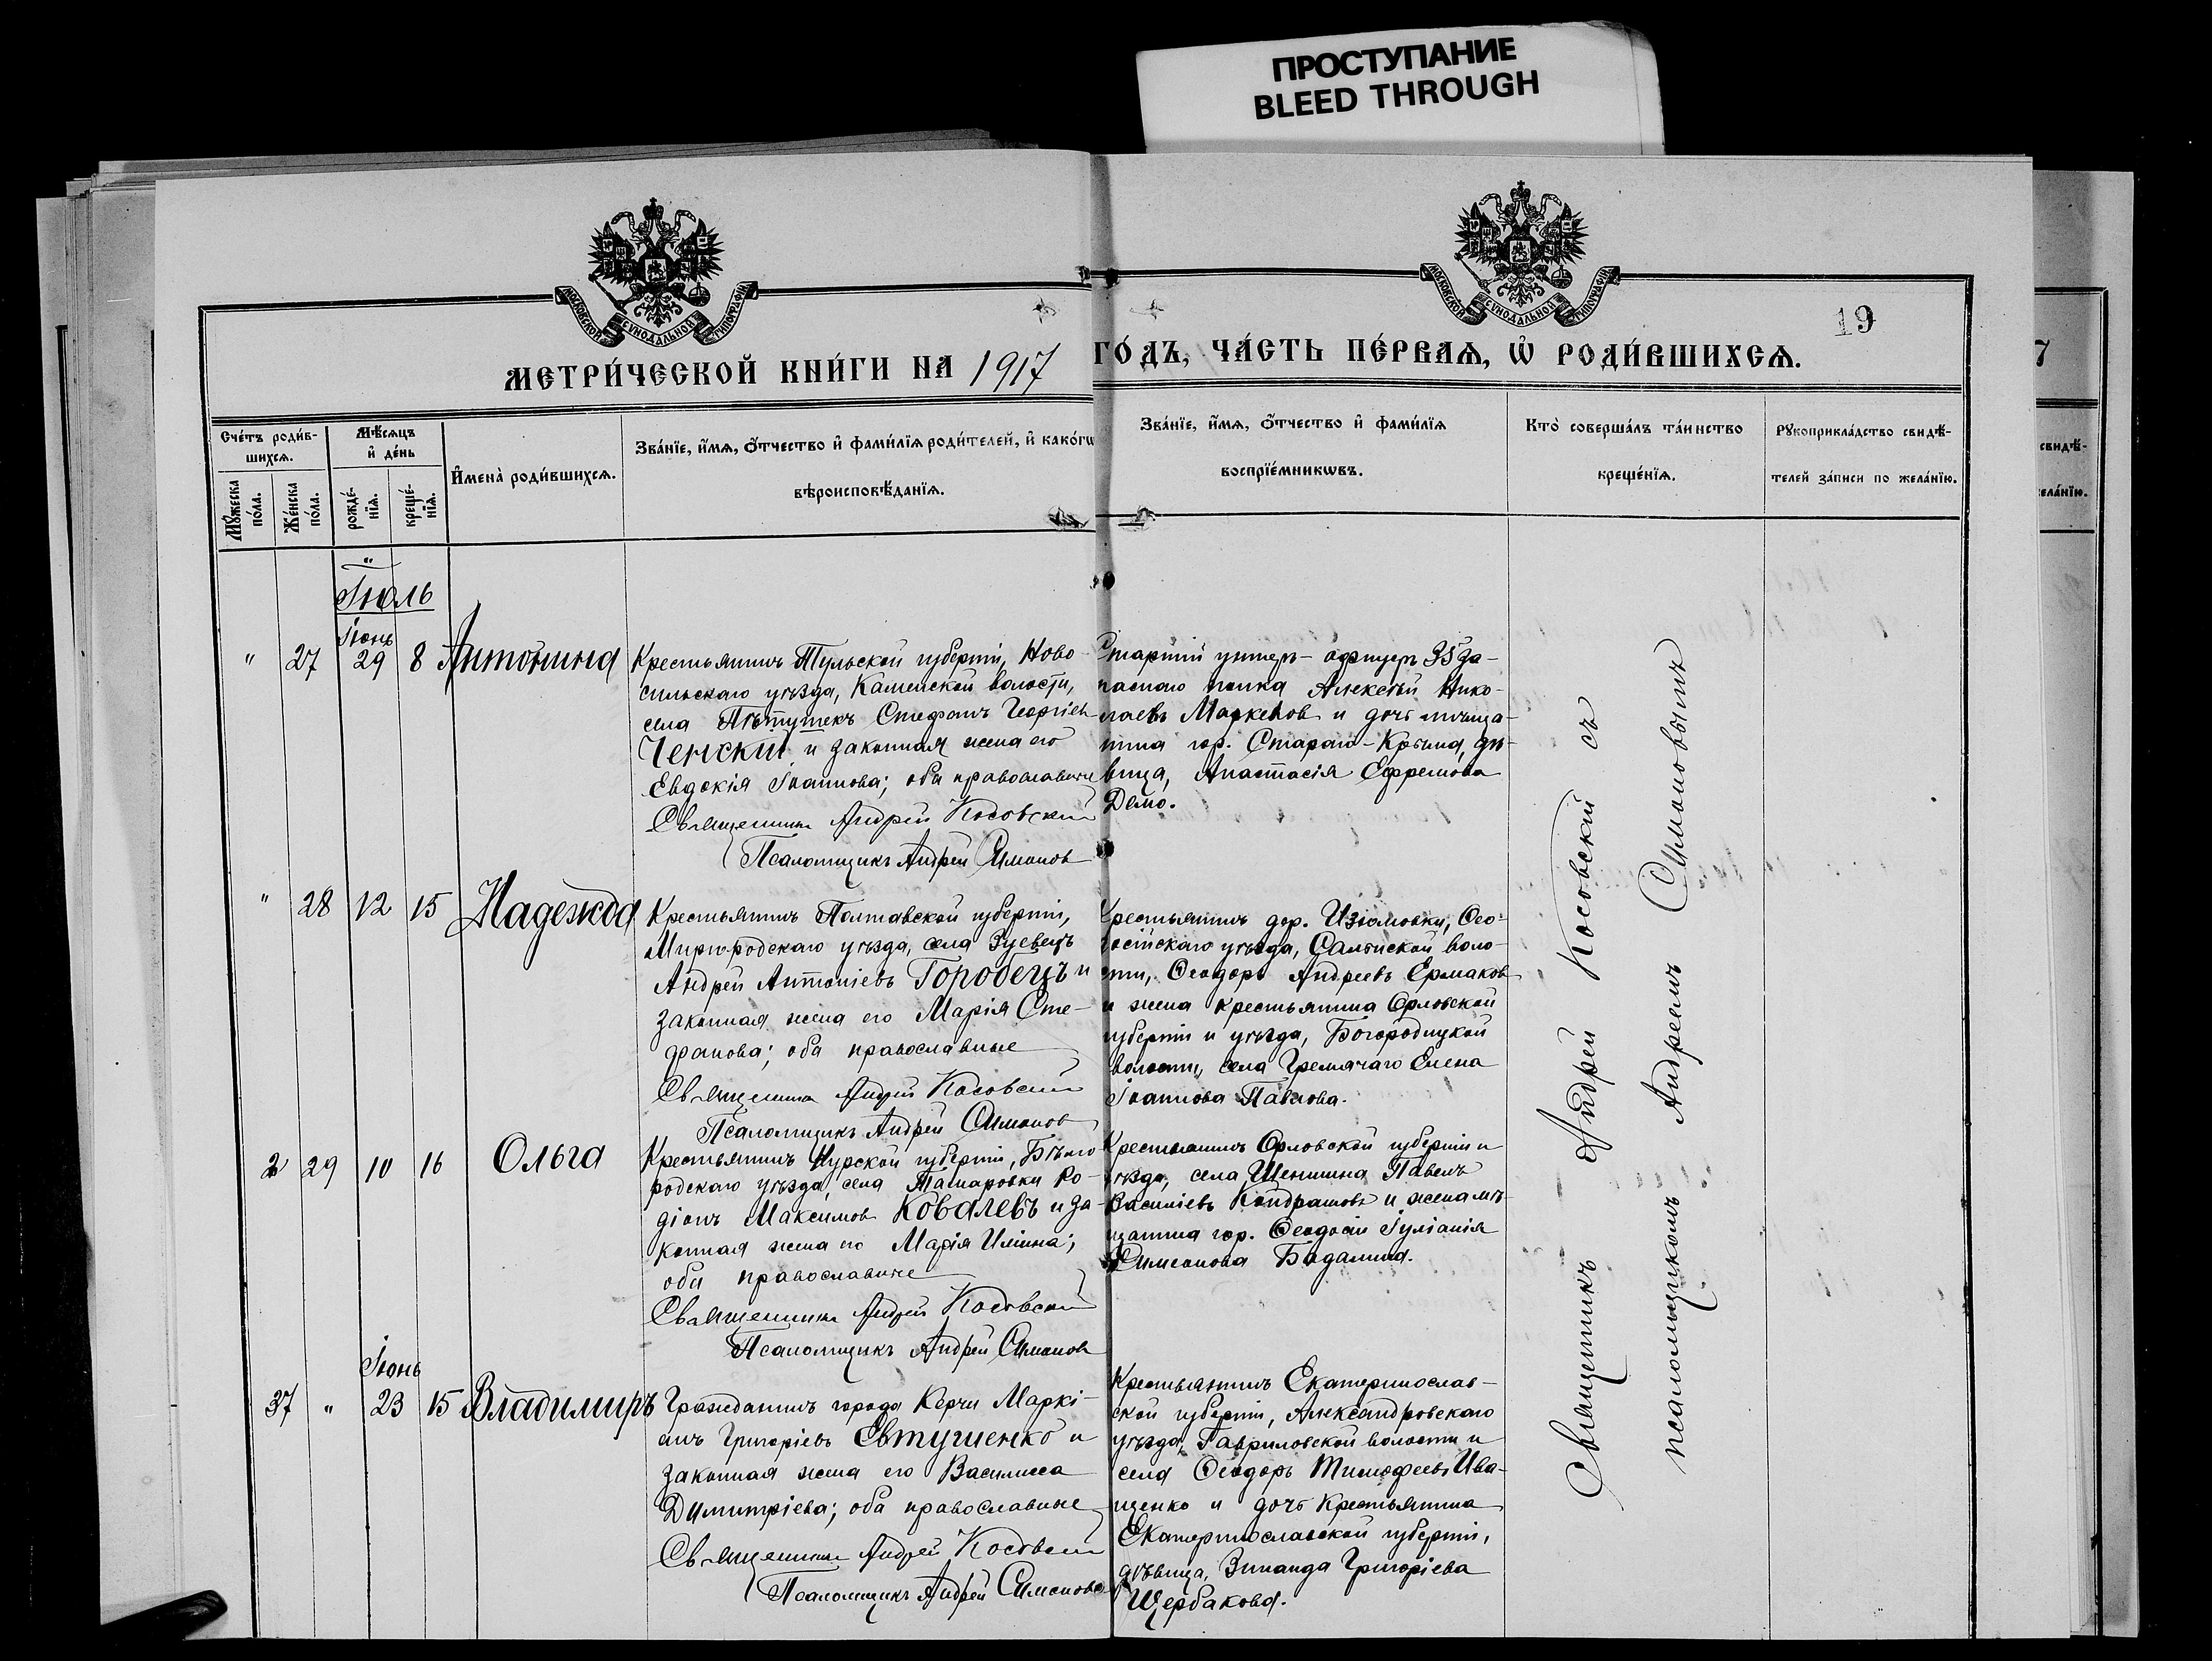 ПРОСТУПАНИЕ
BLEED THROUGH
МОСКОВСКОЙ СУНОДАЛЬНОЙ ТИПОГРАФІИ
МОСКОВСКОЙ СУНОДАЛЬНОЙ ТИПОГРАФІИ
19
МЕТРИ́ЧЕСКОЙ КНИ́ГИ НА 1917 ГО́ДЪ, ЧА́СТЬ ПЕ́РВАЯ, Ѡ РОДИ́ВШИХСЯ.
7
Сче́тъ роди́в-
шихся.
Мѣ́сяцъ
и де́нь
Имена̀ роди́вшихся.
Зва́нїе, и́мя, ѻ́тчество и фами́лїя роди́телей, и како́гѡ
вѣроисповѣ́данїя.
Зва́нїе, и́мя, ѻ́тчество и фами́лїя
воспрїе́мникѡвъ.
Кто̀ соверша́лъ та́инство
креще́нїя.
Рꙋкоприкла́дство свидѣ́-
телей за́писи по жела́нїю.
свидѣ́-
ела́нїю.
Мꙋ́жеска
по́ла.
Же́нска
по́ла.
рожде́-
нїя.
креще́-
нїя.
Іюль
Іюнь
" 27 29 8 Антонина
Крестьянинъ Тульской губерніи, Ново-
сильскаго уѣзда, Каменской волости,
села Пѣтушекъ Стефанъ Георгіев
Ченскій и законная жена его
Евдокія Іоаннова; оба православные
Священникъ Андрей Косовский
Псаломщикъ Андрей Симонов
Старшій унтеръ-офицеръ 35 за-
паснаго полка Алексѣй Нико-
лаевъ Маркелов и дочь мѣща-
нина гор. Стараго-Крыма, дѣ-
вица, Анастасія Ефремова
Демо.
" 28 12 15 Надежда
Крестьянинъ Полтавской губерніи,
Миргородскаго уѣзда, села Зуевецъ
Андрей Антоніевъ Горобецъ и
законная жена его Марія Сте-
фанова; оба православные
Священникъ Андрей Косовский
Псаломщикъ Андрей Симонов
Крестьянинъ дер. Изюмовки, Ѳео-
досійскаго уѣзда, Салынской воло-
сти, Ѳеодоръ Андреевъ Ермаков
и жена крестьянина Орловской
губерніи и уѣзда, Богородицкой
волости, села Гремячаго Елена
Іоаннова Павлова.
29 10 16 Ольга
Крестьянинъ Курской губерніи, Бѣлго
родскаго уѣзда, села Тамаровки Ро-
діонъ Максимов Ковалевъ и за-
конная жена его Марія Ильина;
оба православные
Священникъ Андрей Косовский
Псаломщикъ Андрей Симонов
Крестьянинъ Орловской губерніи и
уѣзда, села Шеншина Павелъ
Василіевъ Кондрашовъ и жена мѣ-
щанина гор. Ѳеодосіи Іуліанія
Симеонова Бадалина.
Іюнь
37 " 23 15 Владимиръ
Гражданинъ города Керчи Маркі-
анъ Григоріевъ Евтушенко и
законная жена его Василисса
Димитріева; оба православные
Священникъ Андрей Косовский
Псаломщикъ Андрей Симонов
Крестьянинъ Екатеринослав-
ской губерніи, Александровскаго
уѣзда, Гавриловской волости и
села Ѳеодоръ Тимофеевъ Ива-
щенко и дочь крестьянина
Екатеринославской губерніи,
дѣвица, Зинаида Григоріева
Щербакова.
Священникъ Андрей Косовскій съ
псаломщикомъ Андреемъ Симоновымъ